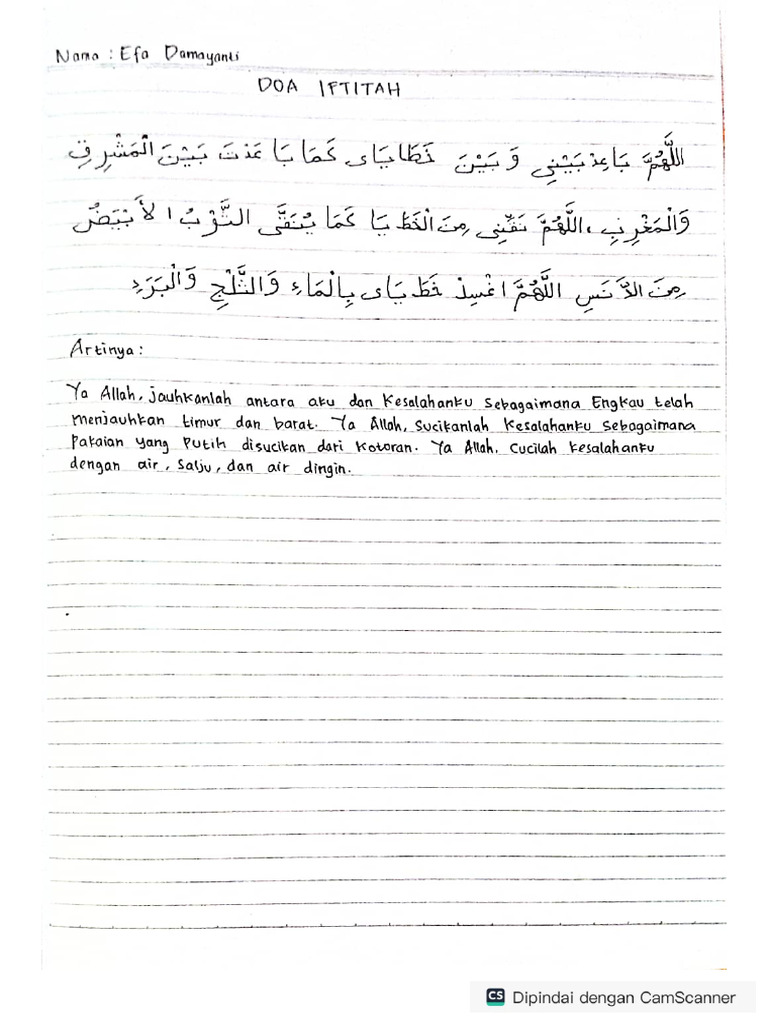 Nama : Efa Damayanti
DOA IFTITAH
اللَّهُمَّ بَاعِدْ بَيْنِي وَ بَيْنَ خَطَايَاى كَمَا بَا عَدْتَ بَيْنَ الْمَشْرِقِ
وَالْمَغْرِبِ ، اللَّهُمَّ نَقِّنِى مِنَ الْخَطَ يَا كَمَا يُنَقَّى الثَّوْبُ الأَبْيَضُ
مِنَ الدَّنَسِ اللَّهُمَّ اغْسِلْ خَطَ يَاى بِالْمَاءِ وَالثَّلْجِ وَالْبَرَدِ
Artinya :
Ya Allah, jauhkanlah antara aku dan Kesalahanku sebagaimana Engkau telah
menjauhkan timur dan barat. Ya Allah, sucikanlah Kesalahanku sebagaimana
Pakaian yang Putih disucikan dari Kotoran. Ya Allah, Cucilah kesalahanku
dengan air, Salju, dan air dingin.
CS Dipindai dengan CamScanner